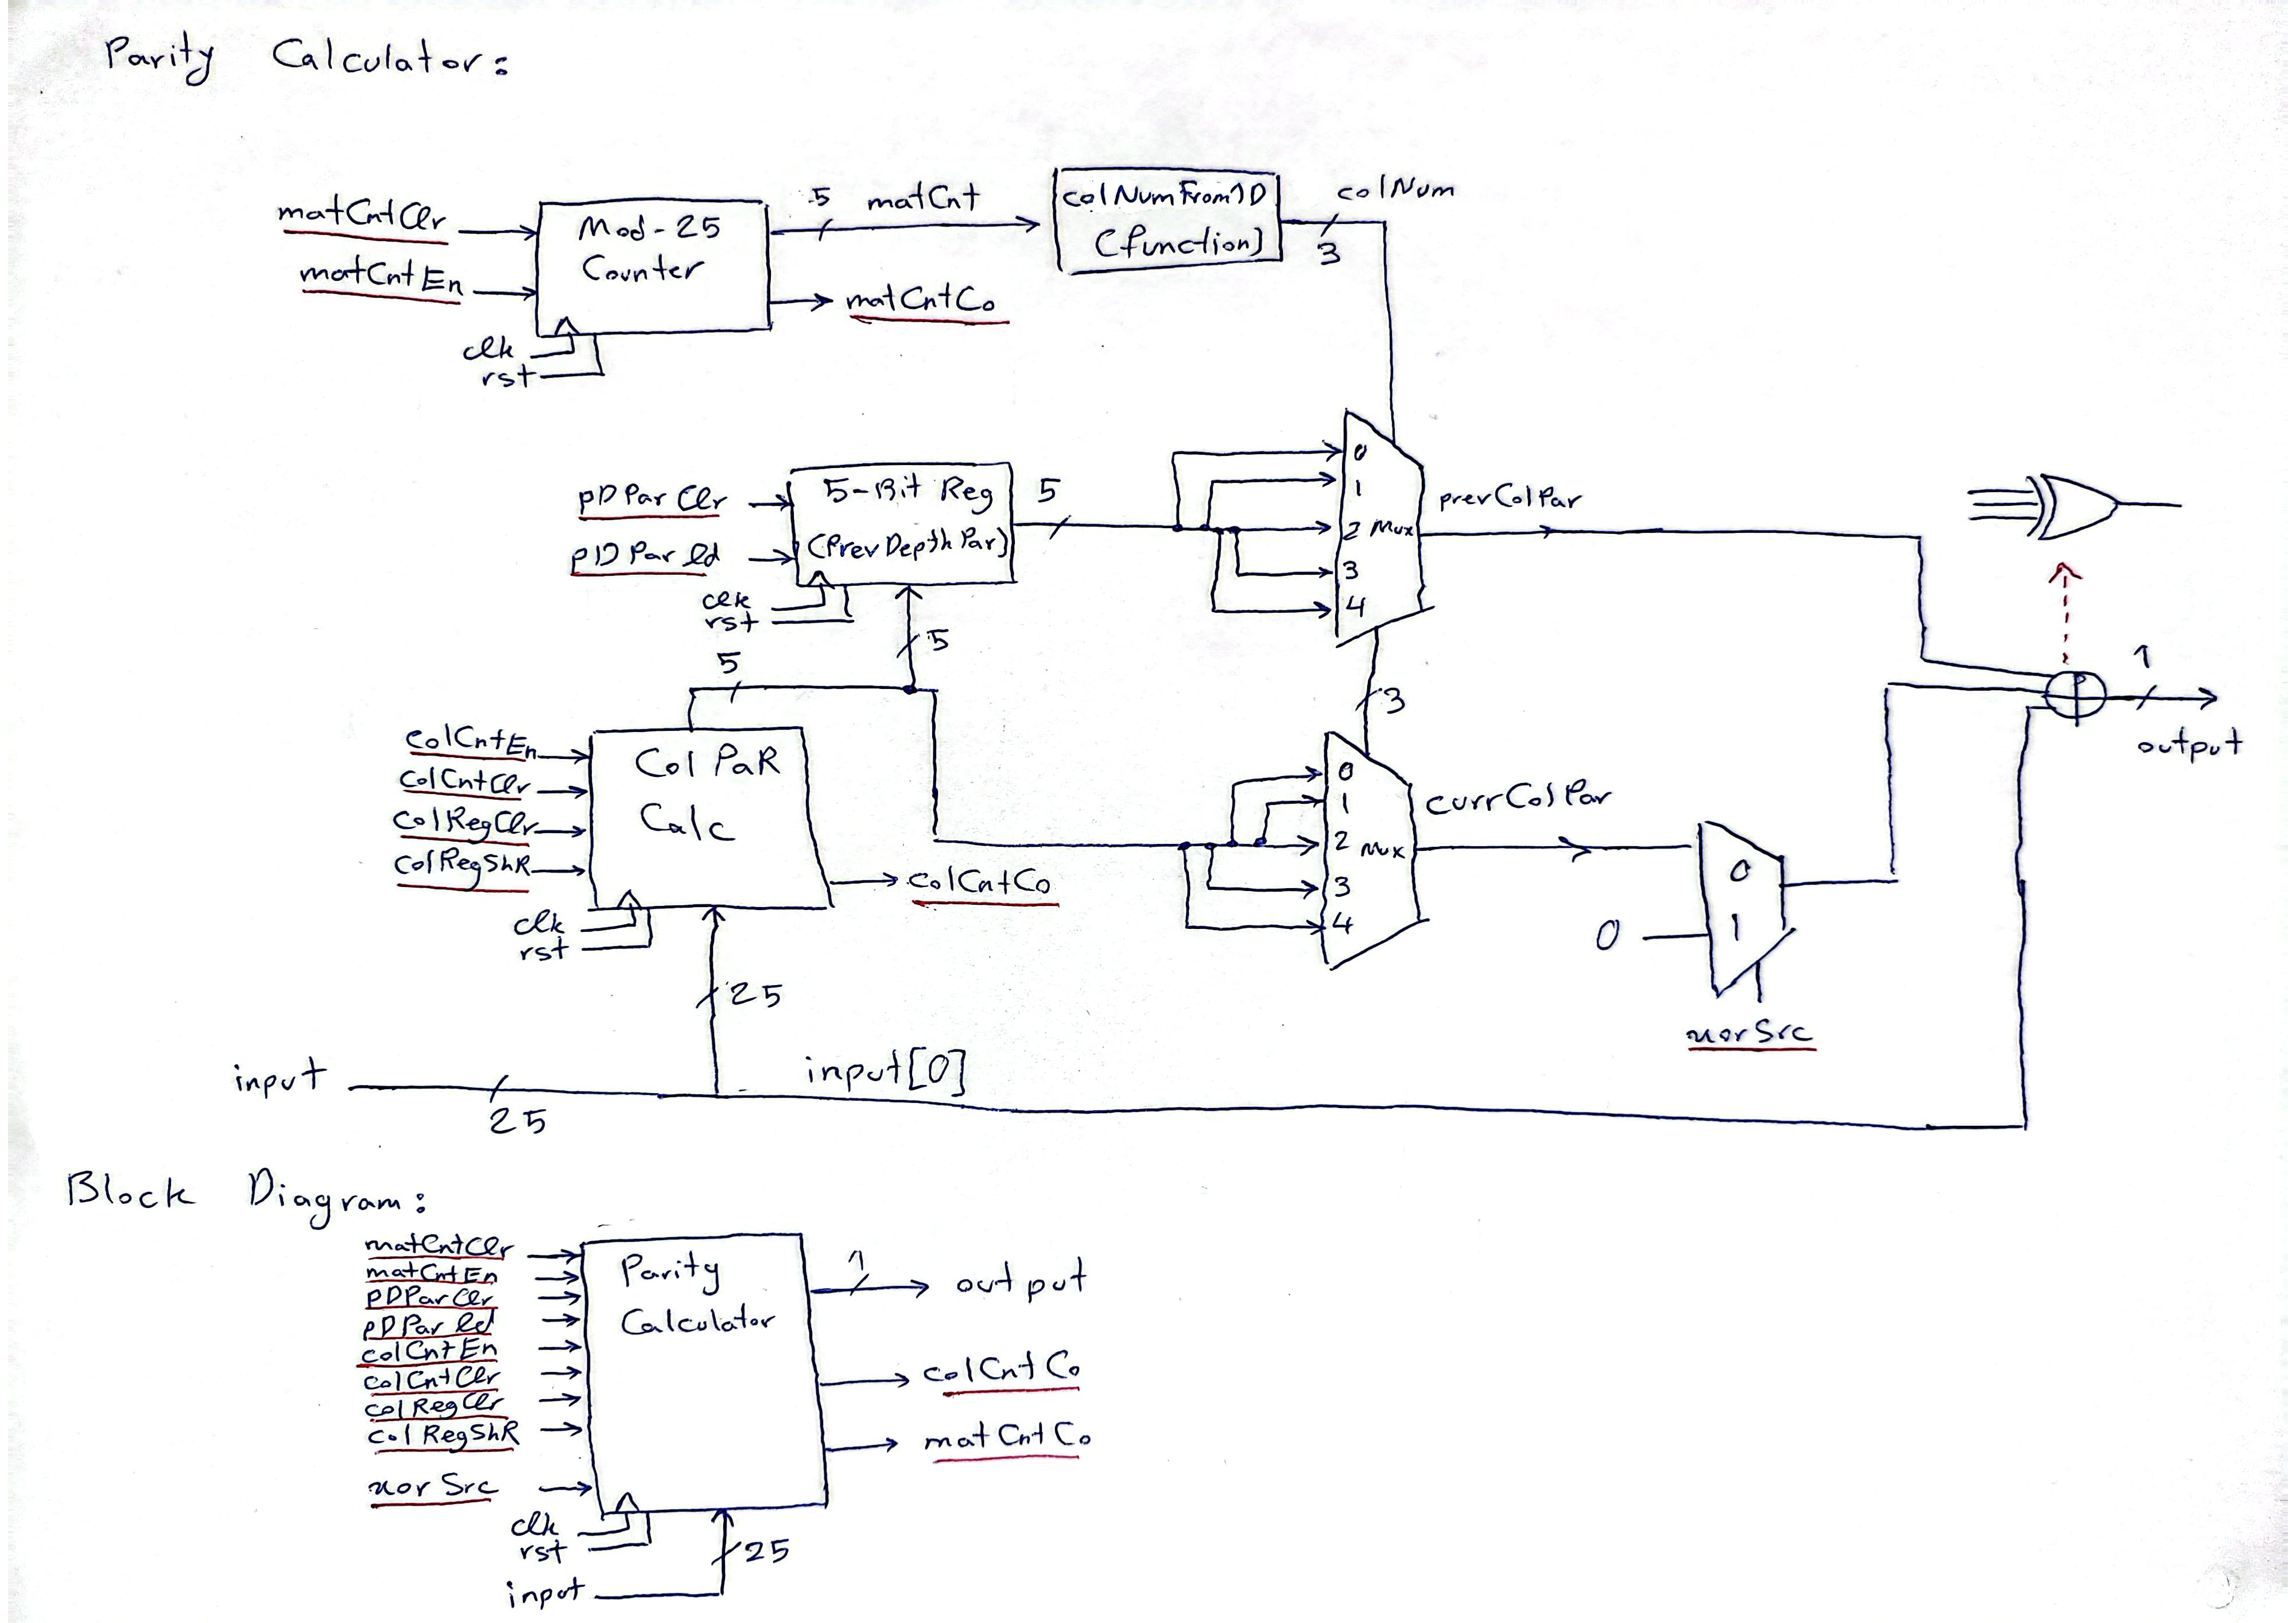 Parity Calculator:
matCntClr
matCntEn
Mod-25
Counter
clk
rst
5
matCnt
matCntCo
colNumFrom1D
(function)
colNum
3
pDParClr
pDParld
5-Bit Reg
(PrevDepthPar)
clk
rst
5
5
5
0
1
2 Mux
3
4
prevColPar
3
colCntEn
colCntClr
colRegClr
colRegShR
Col PaR
Calc
clk
rst
colCntCo
25
0
1
2 Mux
3
4
currColPar
0
1
0
xorSrc
1
output
input
25
input[0]
Block Diagram:
matCntClr
matCntEn
pDParClr
pDParld
colCntEn
colCntClr
colRegClr
colRegShR
xorSrc
Parity
Calculator
clk
rst
input
25
1
output
colCntCo
matCntCo